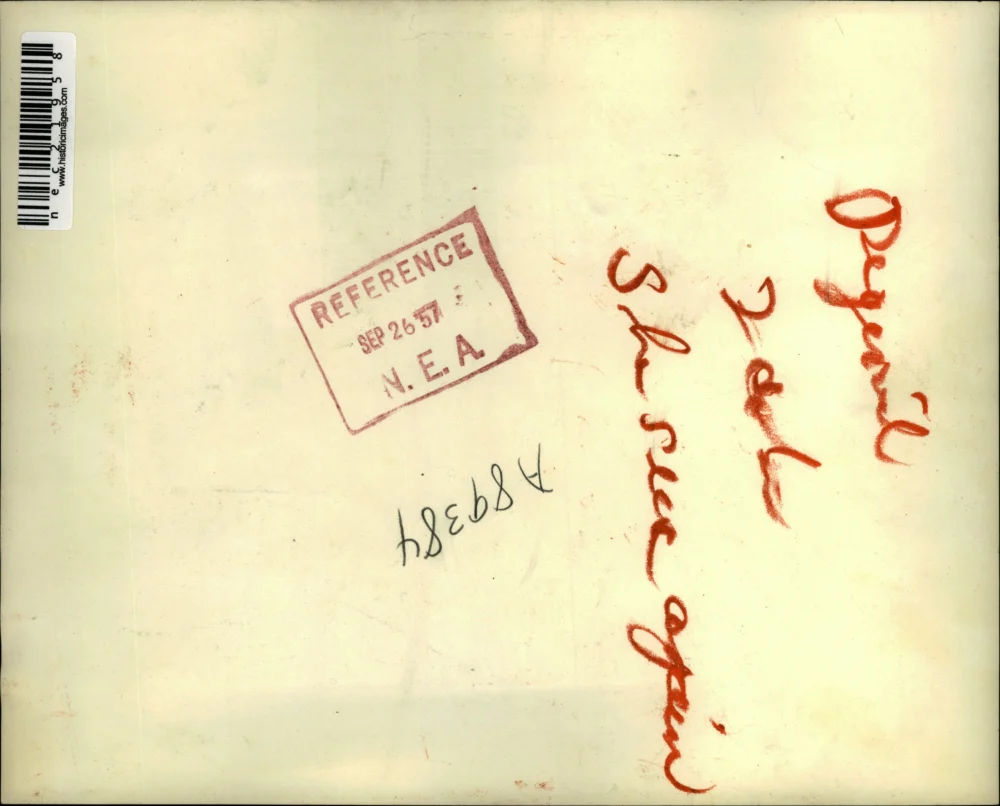 nec21958
www.historicimages.com
REFERENCE
SEP 26 57
N. E. A.
A89384
2 col
She sees again